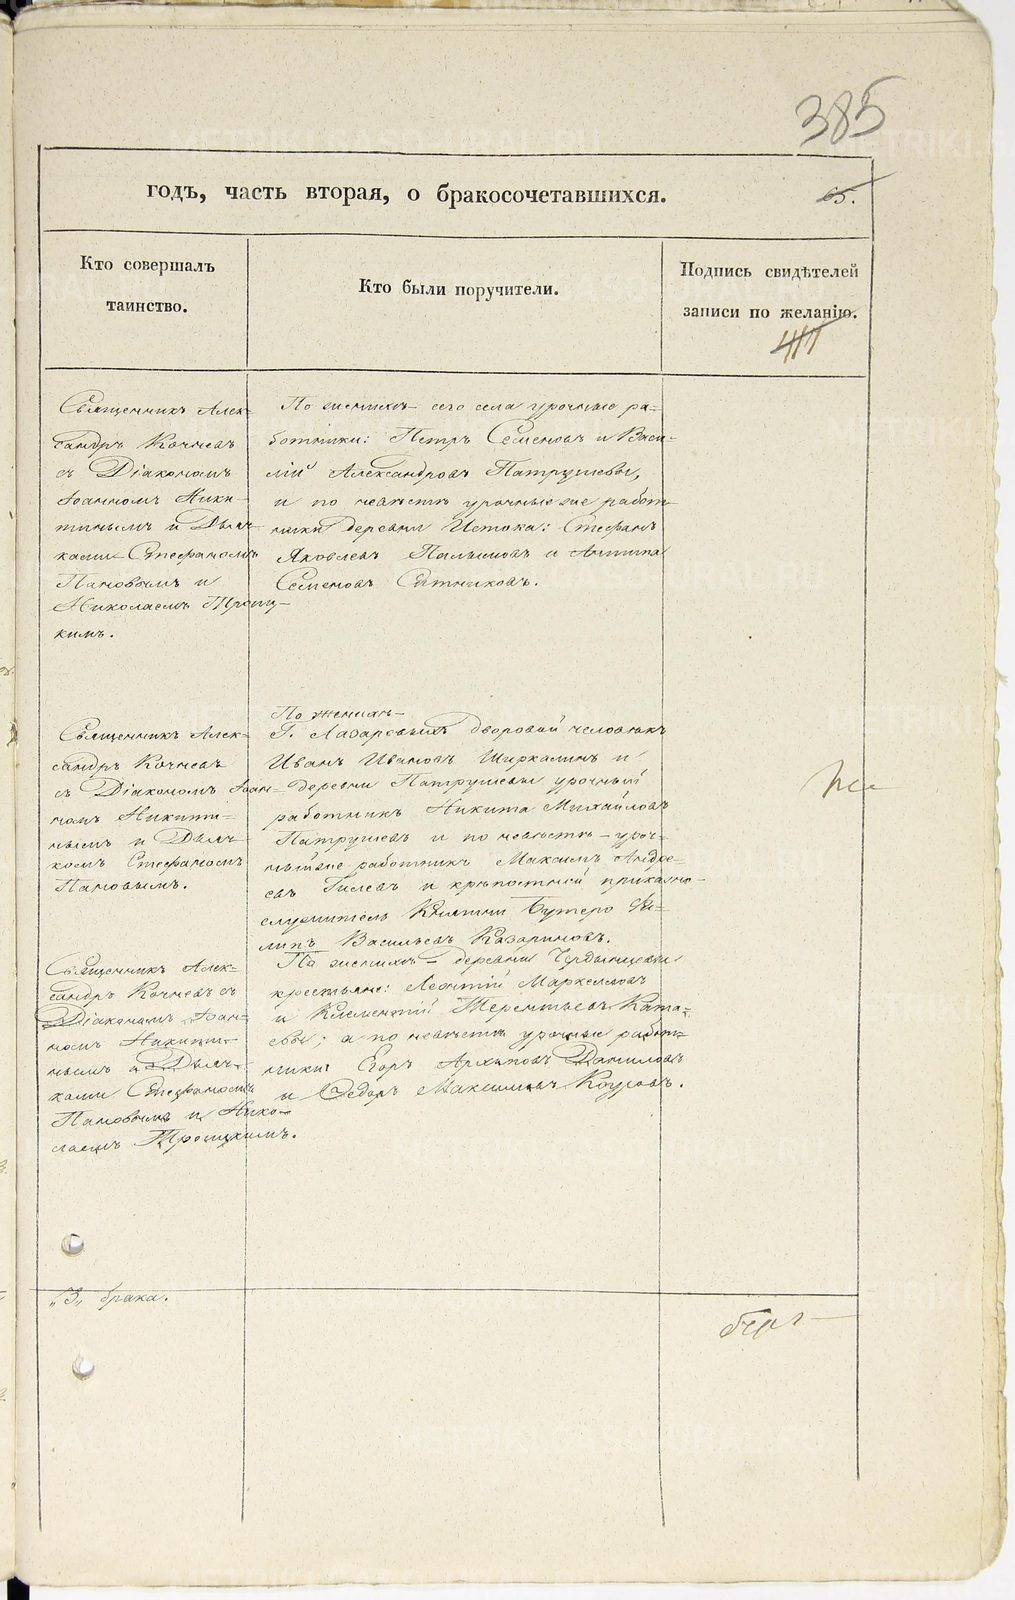 385
годъ, часть вторая, о бракосочетавшихся.
65.
Кто совершалъ
таинство.
Кто были поручители.
Подпись свидѣтелей
записи по желанію.
Священникъ Алек-
сандръ Кочневъ
съ Діакономъ
Іоанномъ Ники-
тинымъ и Дьяч-
ками Стефаномъ
Пановымъ и
Николаемъ Троиц-
кимъ.
По женихѣ сего села урочные ра-
ботники: Петръ Семеновъ и Васи-
лій Александровъ Патрушевы,
и по невѣстѣ урочные же работ-
ники деревни Истока: Стефанъ
Яковлевъ Пальшовъ и Антипа
Семеновъ Ситниковъ.
Священникъ Алек-
сандръ Кочневъ
съ Діакономъ Іоан-
номъ Никити-
нымъ и Дьяч-
комъ Стефаномъ
Пановымъ.
По женихѣ
Г. Лазаревыхъ дворовой человѣкъ
Иванъ Ивановъ Ширкалинъ и
деревни Патрушевы урочный
работникъ Никита Михайловъ
Патрушевъ и по невѣстѣ уроч-
ный же работникъ Максимъ Андре-
евъ Гилевъ и крѣпостной приказно-
служитель Княгини Бутеро Фи-
липъ Васильевъ Казариновъ.
Священникъ Алек-
сандръ Кочневъ съ
Діакономъ Іоан-
номъ Никити-
нымъ и Дьяч-
ками Стефаномъ
Пановымъ и Нико-
лаемъ Троицкимъ.
По женихѣ деревни
крестьяне: Леонтій Маркеловъ
и Клементій Терентьевъ Ката-
евы; а по невѣстѣ урочные работ-
ники Егоръ Архиповъ Даниловъ
и Ѳедоръ Максимовъ Коусовъ.
„3„ брака.
METRIKI.GASO-URAL.RU